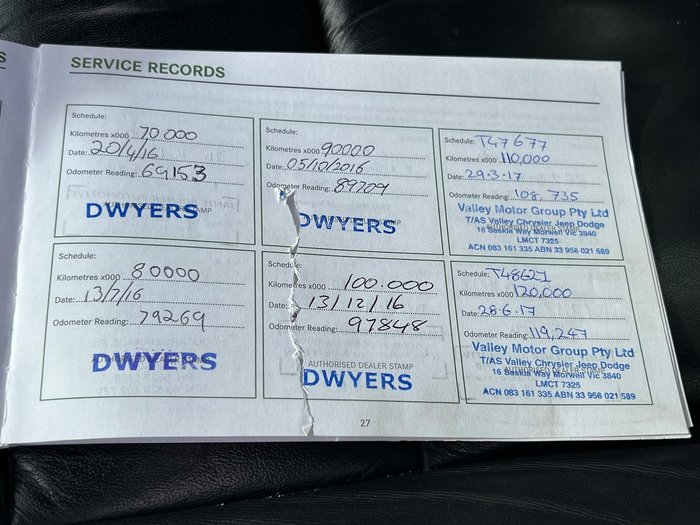 S
SERVICE RECORDS
Schedule:
Kilometres x000 70 000
Date: 20/4/16
Odometer Reading: 69153
AUTHORISED DEALER STAMP
DWYERS
Schedule:
Kilometres x000 80000
Date: 13/7/16
Odometer Reading: 79269
AUTHORISED DEALER STAMP
DWYERS
Schedule:
Kilometres x000 90000
Date: 05/10/2016
Odometer Reading: 89209
AUTHORISED DEALER STAMP
DWYERS
Schedule:
Kilometres x000 100.000
Date: 13/12/16
Odometer Reading: 97848
AUTHORISED DEALER STAMP
DWYERS
Schedule: T47677
Kilometres x000 110,000
Date: 29.3.17
Odometer Reading: 108,735
Valley Motor Group Pty Ltd
T/AS Valley Chrysler Jeep Dodge
AUTHORISED DEALER STAMP
16 Saskia Way Morwell Vic 3840
LMCT 7325
ACN 083 161 335 ABN 33 956 021 589
Schedule: T48621
Kilometres x000 120,000
Date: 28.6.17
Odometer Reading: 119,247
Valley Motor Group Pty Ltd
T/AS Valley Chrysler Jeep Dodge
AUTHORISED DEALER STAMP
16 Saskia Way Morwell Vic 3840
LMCT 7325
ACN 083 161 335 ABN 33 956 021 589
27